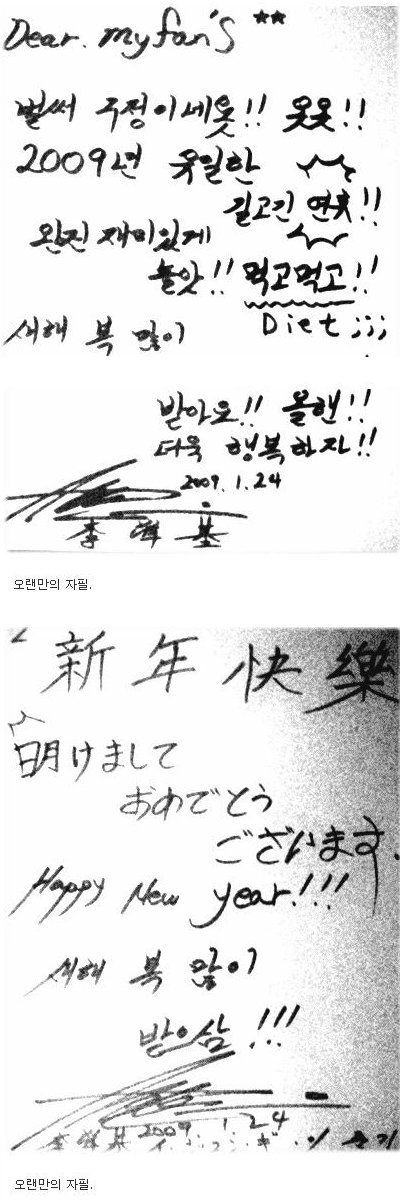 Dear. my fan's **
벌써 구정이네욧!! 욧욧!!
2009년 유일한
길고긴 연휴!!
완전 재미있게
놀앗!! 먹고먹고!!
Diet ;;;
새해 복 많이
받아요!! 올핸!!
더욱 행복하자!!
2009. 1. 24
李 準 基
오랜만의 자필.
新年快樂
明けまして
おめでとう
ございます.
Happy New year!!!
새해 복 많이
받으삼!!!
2009 1. 24
오랜만의 자필.